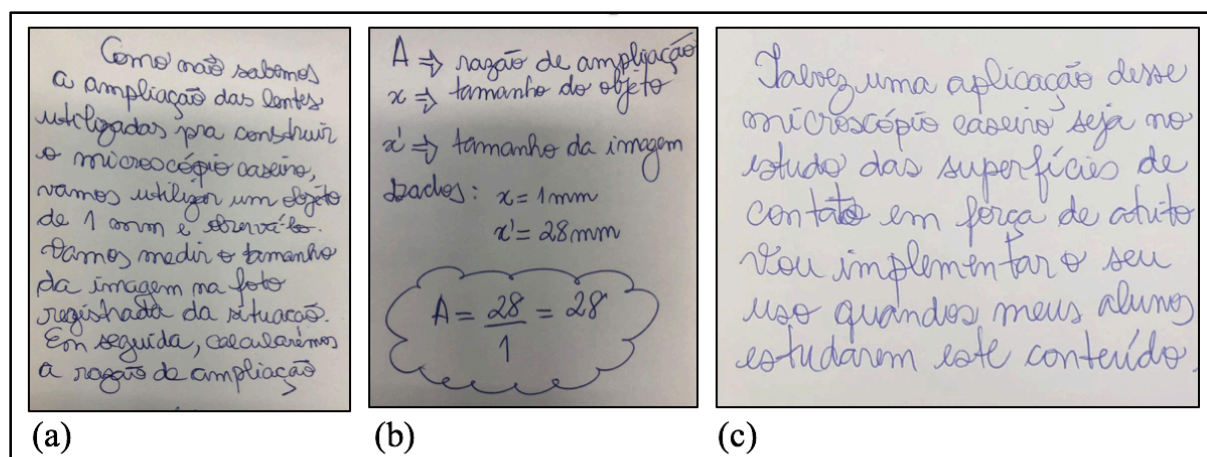 Como não sabemos
a ampliação das lentes
utilizadas pra construir
o microscópio caseiro,
vamos utilizar um objeto
de 1 mm e observá-lo.
Vamos medir o tamanho
da imagem na foto
registrada da situação.
Em seguida, calcularémos
a razão de ampliação
(a)
A ⇒ razão de ampliação
x ⇒ tamanho do objeto
x' ⇒ tamanho da imagem
Dados: x = 1mm
x' = 28mm
A = 28/1 = 28
(b)
Talvez uma aplicação desse
microscópio caseiro seja no
estudo das superfícies de
contato em força de atrito
Vou implementar o seu
uso quandos meus alunos
estudarem este conteúdo.
(c)